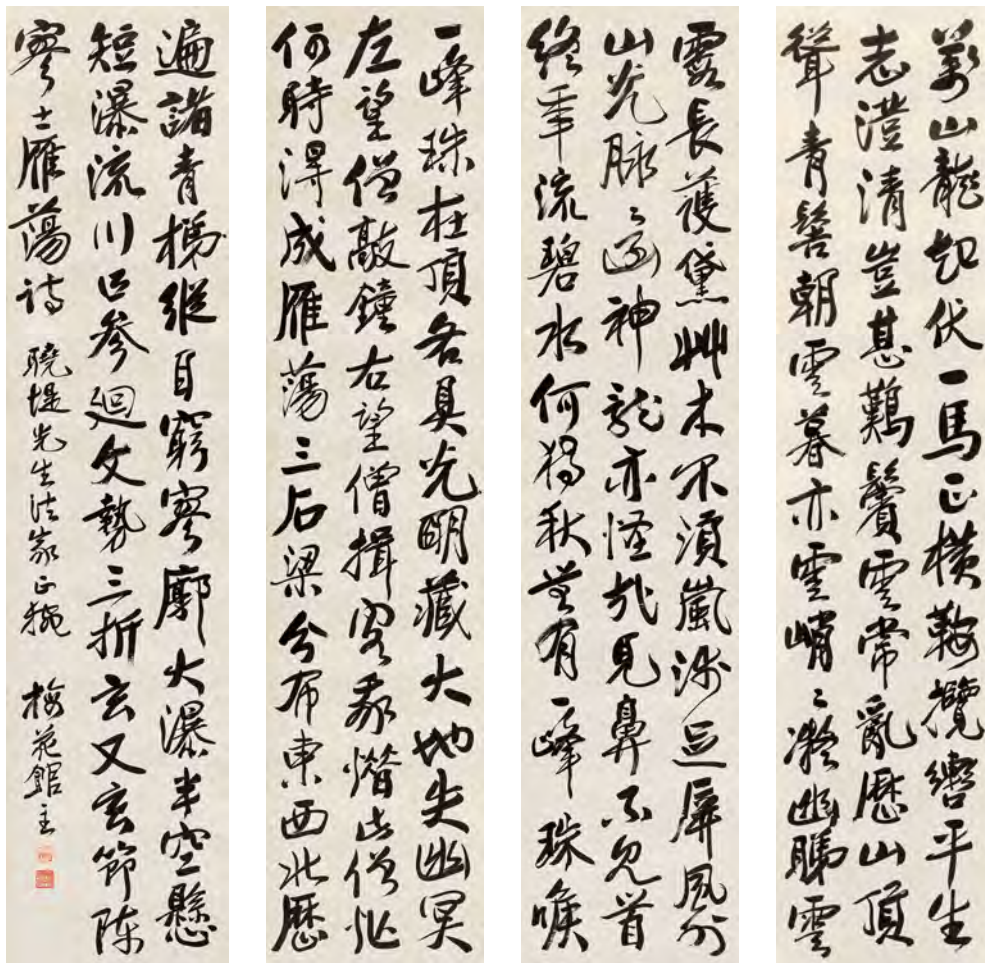 萬山龍起伏一馬正橫鞍攬轡平生
志澄清豈甚難鬢雲常亂歷山頂
聳青髻朝雲暮亦雲峭〻凝幽睇雲
霧長護黛艸木不須嵐屏風
山光脉〻通神龍亦怪哉見鼻不見首
終年流碧水何獨秋無有一峰珠喉
一峰珠在頂各具光明藏大地失幽冥
左望僧敲鐘右望僧揖客此僧忙
何時得成雁蕩三石梁分布東西北歷
遍諸青縱目窮寥廓大瀑半空懸
短瀑流川參廻文勢三折玄又玄節陳
寥士雁蕩詩 曉堤先生法家正腕 梅花館主